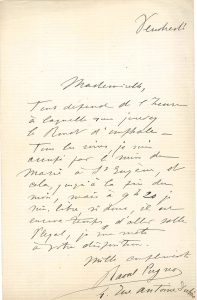 Vendredi
Mademoiselle,
Tout dépend de l'heure
à laquelle vous jouez
le Rouet d'Omphale —
Tous les soirs, je suis
occupé par le mois de
Marie à St Eugène, et
cela, jusqu'à la fin du
mois, mais à 9h 20 je
suis libre, si donc, il est
encore temps d'aller salle
Pleyel, je me mets
à votre disposition.
Mille compliments
Raoul Pugno
rue Antoine